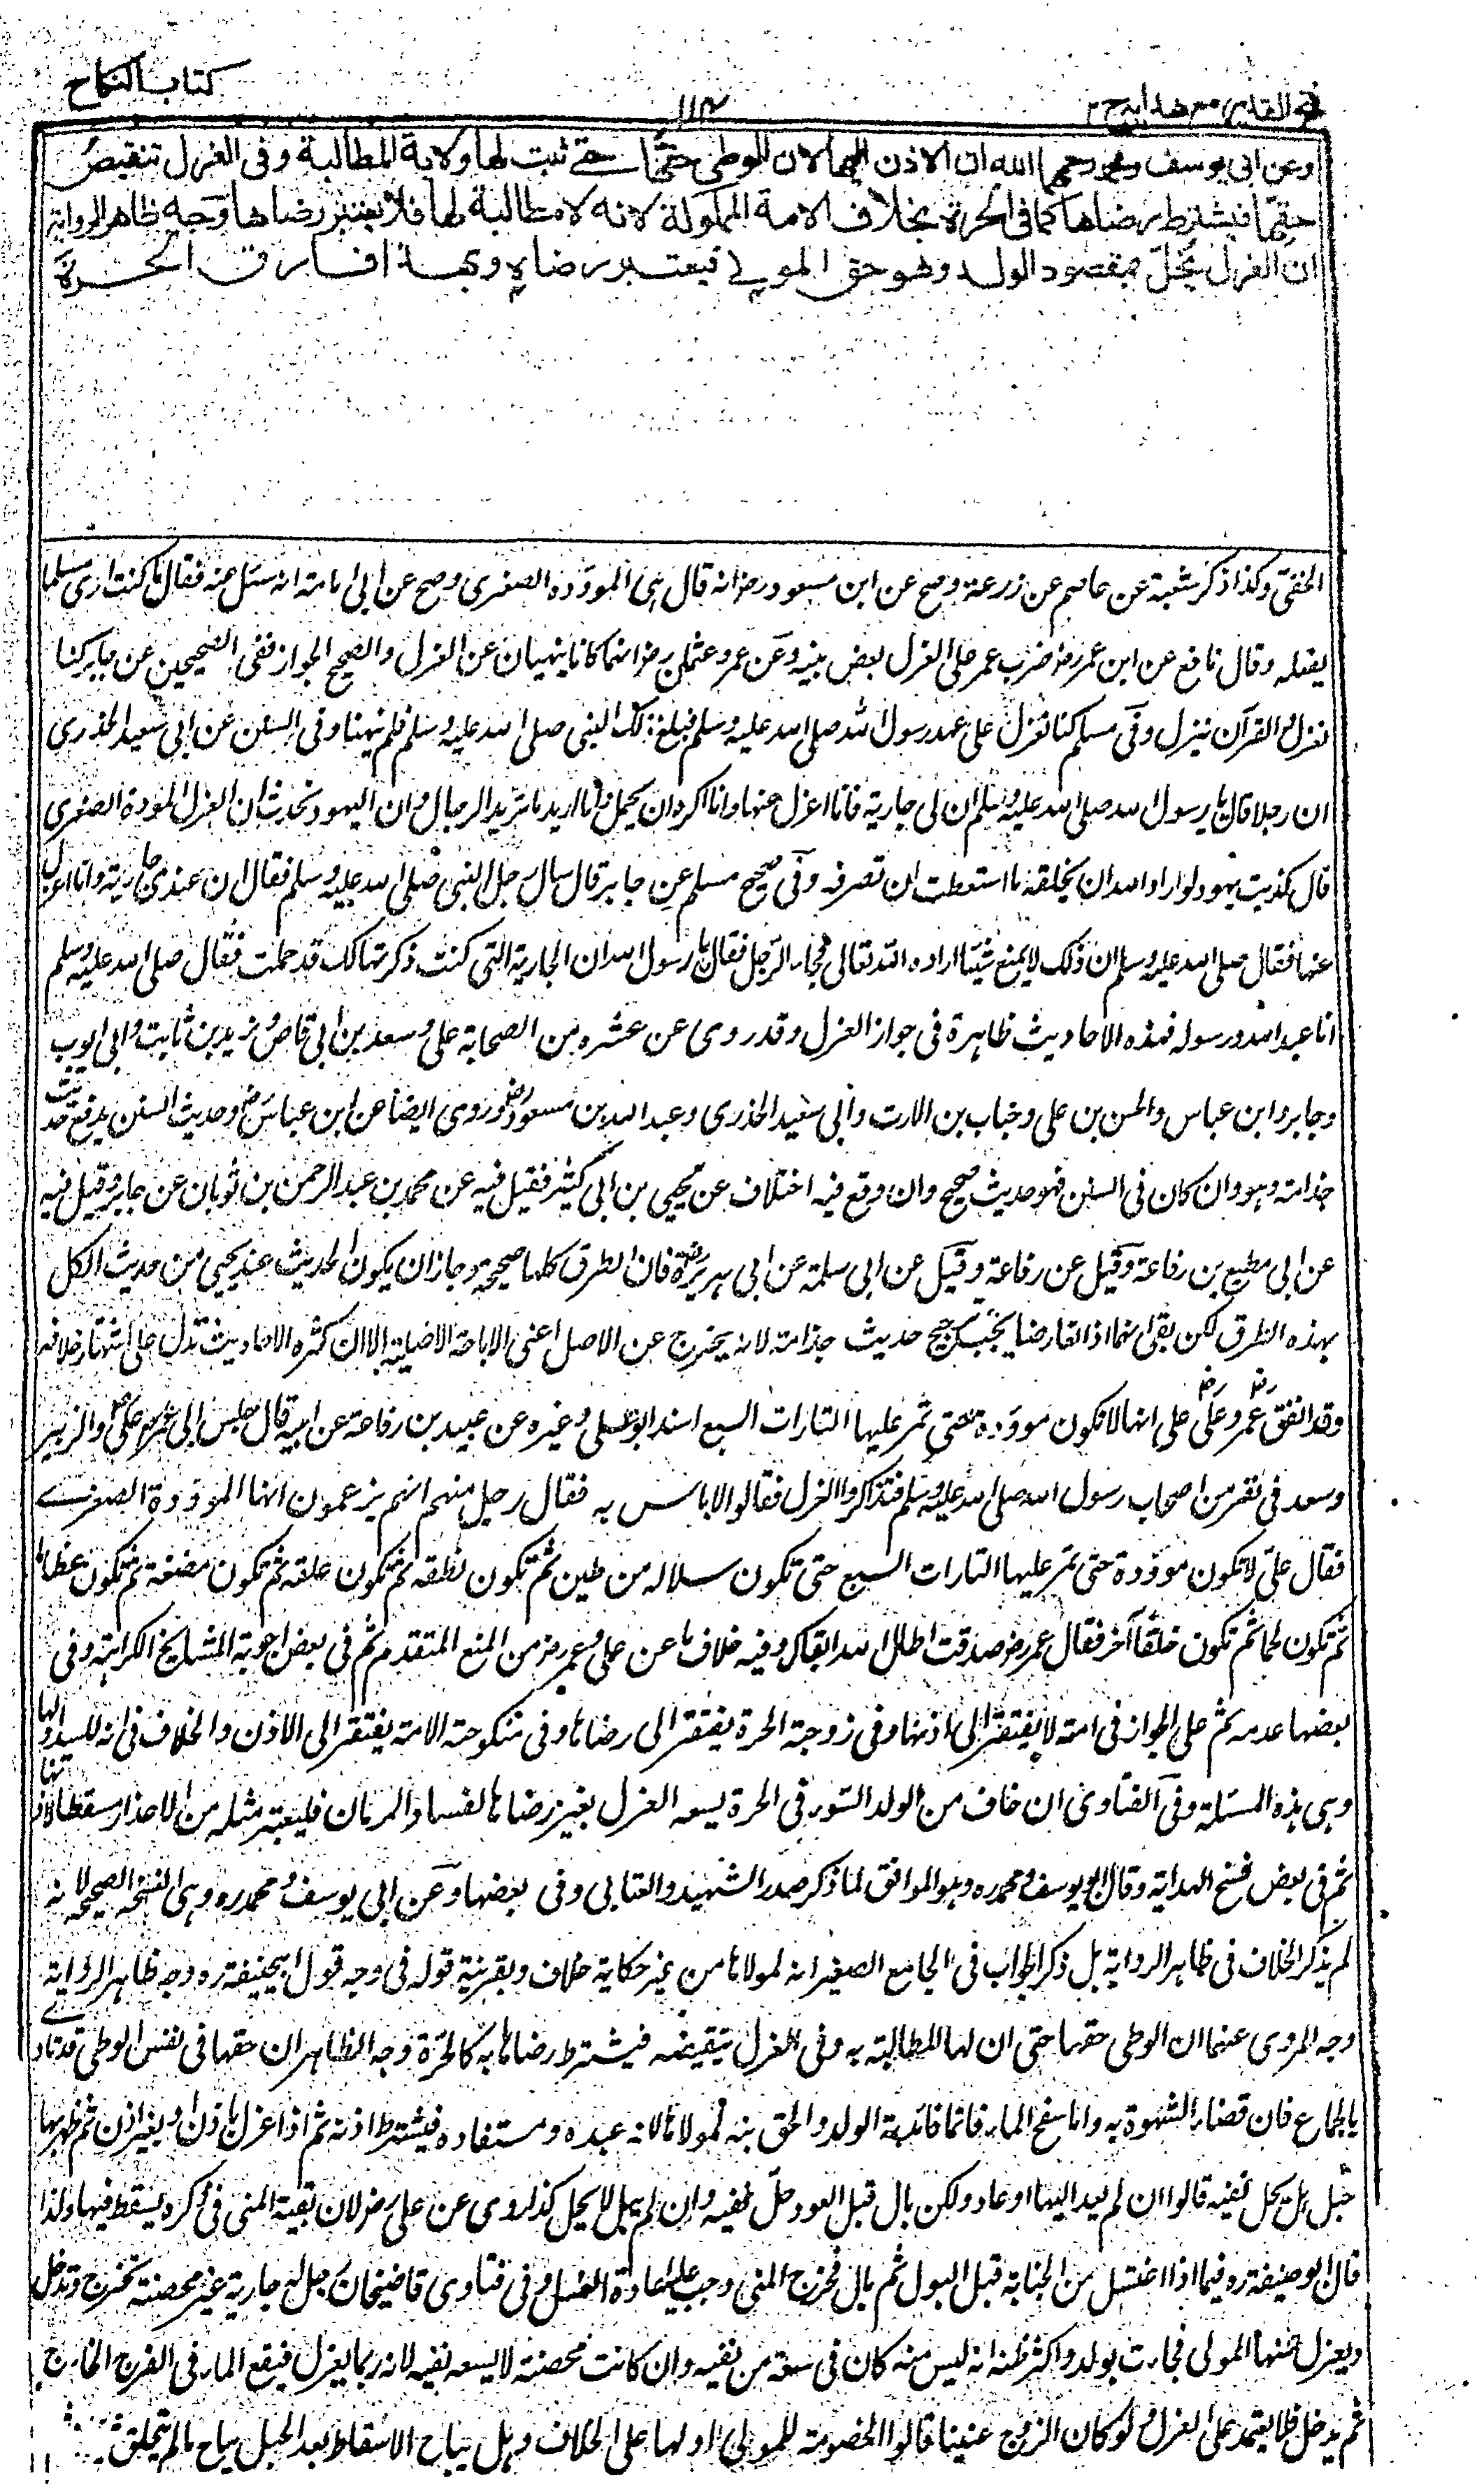 كتاب النكاح
١١٣
فتح القدير مع هدايه ج ٢
وعن ابى يوسف ومحمد رحمهما الله ان الاذن اليها لان الوطى حقها حتى ثبت لها ولاية المطالبة وفى العزل تنقيص
حقها فيشترط رضاها كما فى الحرة بخلاف الامة المملوكة لانه لا مطالبة لها فلا يعتبر رضاها وجه ظاهر الرواية
ان العزل يخل بمقصود الولد وهو حق المولى فيعتبر رضاه وبهذا فارق الحرة
الخفى وكذا ذكر شعبة عن عاصم عن زر عنه وصح عن ابن مسعود رض انه قال هى الموؤدة الصغرى وصح عن ابى امامة انه سئل عنه فقال ما كنت ارى مسلما
يفعله وقال نافع عن ابن عمر رض ضرب عمر على العزل بعض بنيه وعن عمر وعثمان رض انهما كانا ينهيان عن العزل والصحيح الجواز ففى الصحيحين عن جابر كنا
نعزل والقرآن ينزل وفى مسلم كنا نعزل على عهد رسول الله صلى الله عليه وسلم فبلغ ذلك النبى صلى الله عليه وسلم فلم ينهنا وفى السنن عن ابى سعيد الخدرى
ان رجلا قال يا رسول الله صلى الله عليه وسلم ان لى جارية فانا اعزل عنها وانا اكره ان تحمل وانا اريد ما تريد الرجال وان اليهود تحدث ان العزل الموؤدة الصغرى
قال كذبت يهود لو اراد الله ان يخلقه ما استطعت ان تصرفه وفى صحيح مسلم عن جابر قال سأل رجل النبى صلى الله عليه وسلم فقال ان عندى جارية وانا اعزل
عنها فقال صلى الله عليه وسلم ان ذلك لا يمنع شيئا اراده الله تعالى فجاء الرجل فقال يا رسول الله ان الجارية التى كنت ذكرتها لك قد حملت فقال صلى الله عليه وسلم
انا عبد الله ورسوله فهذه الاحاديث ظاهرة فى جواز العزل وقد روى عن عشره من الصحابة على وسعد بن ابى وقاص وزيد بن ثابت وابى ايوب
وجابر وابن عباس والحسن بن على وخباب بن الارت وابى سعيد الخدرى وعبد الله بن مسعود رض وروى ايضا عن ابن عباس رض وحديث السنن يدفع حديث
جذامة وهو وان كان فى السنن فهو حديث صحيح وان وقع فيه اختلاف عن يحيى بن ابى كثير فقيل فيه عن محمد بن عبد الرحمن بن ثوبان عن جابر وقيل فيه
عن ابى مطيع بن رفاعة وقيل عن رفاعة وقيل عن ابى سلمة عن ابى هريرة رض فان الطرق كلها صحيحة وجاز ان يكون الحديث عند يحيى من حديث الكل
بهذه الطرق لكن بقى انهما اذا تعارضا يجب ترجيح حديث جذامة لانه يخرج عن الاصل اعنى الاباحة الاصلية الا ان كثرة الاحاديث تدل على اشتهار خلافه
وقد اتفق عمر رض وعلى رض على انها لا تكون موؤدة حتى تمر عليها التارات السبع اسند ابو يعلى وغيره عن عبيد بن رفاعة عن ابيه قال جلس الى عمر على والزبير
وسعد فى نفر من اصحاب رسول الله صلى الله عليه وسلم فتذاكروا العزل فقالوا لا باس به فقال رجل منهم انهم يزعمون انها الموؤدة الصغرى
فقال على لا تكون موؤدة حتى تمر عليها التارات السبع حتى تكون سلاله من طين ثم تكون نطفه ثم تكون علقه ثم تكون مضغة ثم تكون عظاما
ثم تكون لحما ثم تكون خلقا آخر فقال عمر رض صدقت اطال الله بقاك وفيه خلاف ما عن على وعمر رض من المنع المتقدم ثم فى بعض اجوبة المشايخ الكراهة وفى
بعضها عدمه ثم على الجواز فى امته لا يفتقر الى اذنها وفى زوجة الحرة يفتقر الى رضاها وفى منكوحة الامة يفتقر الى الاذن والخلاف فى انه للسيد او لها
وهى هذه المسئلة وفى الفتاوى ان خاف من الولد السوء فى الحرة يسعه العزل بغير رضاها لفساد الزمان فليعتبر مثله من الاعذار مسقطا لاذنها
ثم فى بعض نسخ الهداية وقال ابو يوسف ومحمد ره وهو الموافق لما ذكر صدر الشهيد والعتابى وفى بعضها وعن ابى يوسف ومحمد ره وهى النسخة الصحيحة لانه
لم يذكر الخلاف فى ظاهر الرواية بل ذكر الجواب فى الجامع الصغير انه لمولاها من غير حكاية خلاف وبقرينة قوله فى وجه قول ابيحنيفة ره وجه ظاهر الرواية
وجه المروى عنهما ان الوطى حقها حتى ان لها المطالبة به وفى العزل تنقيصه فيشترط رضاها به كالحرة وجه الظاهر ان حقها فى نفس الوطى قد تادى
بالجماع فان قضاء الشهوة به واما سفح الماء فانما فائدته الولد والحق فيه لمولاها لانه عبده ومستفاده فيشترط اذنه ثم اذا عزل باذن او بغير اذن ثم ظهر بها
حبل هل يحل نفيه قالوا ان لم يعد اليها او عاد ولكن بال قبل العود حل نفيه وان لم يبل لا يحل كذا روى عن على رض لان بقية المنى فى ذكره يسقط فيها ولذا
قال ابو حنيفة ره فيما اذا اغتسل من الجنابة قبل البول ثم بال فخرج المنى وجب عليه اعادة الغسل وفى فتاوى قاضيخان رجل له جارية غير محصنة تخرج وتدخل
ويعزل عنها المولى فجاءت بولد واكثر ظنه انه ليس منه كان فى سعة من نفيه وان كانت محصنة لا يسعه نفيه لانه ربما يعزل فيقع الماء فى الفرج الخارج
ثم يدخل فلا يعتمد على العزل ولو كان الزوج عنينا قالوا الخصومة للمولى او لها على الخلاف وهل يباح الاسقاط بعد الحبل يباح ما لم يتخلق